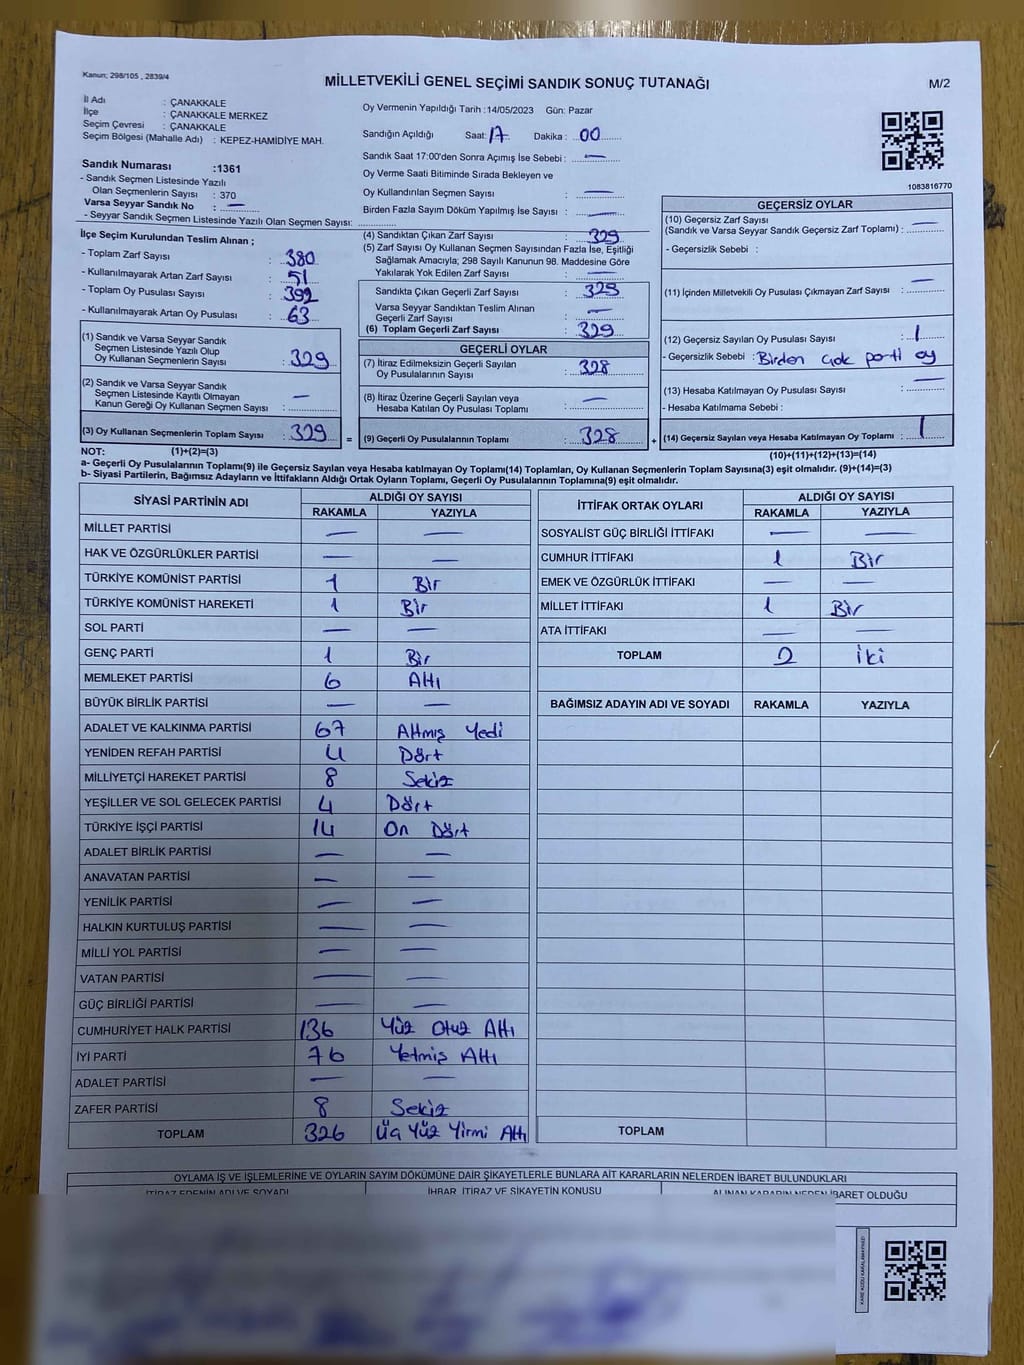 Kanun; 298/105 , 2839/4
MİLLETVEKİLİ GENEL SEÇİMİ SANDIK SONUÇ TUTANAĞI
M/2
İl Adı : ÇANAKKALE
İlçe : ÇANAKKALE MERKEZ
Seçim Çevresi : ÇANAKKALE
Seçim Bölgesi (Mahalle Adı) : KEPEZ-HAMİDİYE MAH.
Sandık Numarası :1361
- Sandık Seçmen Listesinde Yazılı
Olan Seçmenlerin Sayısı : 370
Varsa Seyyar Sandık No : —
- Seyyar Sandık Seçmen Listesinde Yazılı Olan Seçmen Sayısı:
Oy Vermenin Yapıldığı Tarih :14/05/2023 Gün: Pazar
Sandığın Açıldığı Saat: 17 Dakika : 00
Sandık Saat 17:00'den Sonra Açılmış İse Sebebi : —
Oy Verme Saati Bitiminde Sırada Bekleyen ve
Oy Kullandırılan Seçmen Sayısı : —
Birden Fazla Sayım Döküm Yapılmış İse Sayısı : —
1083816770
İlçe Seçim Kurulundan Teslim Alınan ;
- Toplam Zarf Sayısı : 380
- Kullanılmayarak Artan Zarf Sayısı : 51
- Toplam Oy Pusulası Sayısı : 392
- Kullanılmayarak Artan Oy Pusulası : 63
(1) Sandık ve Varsa Seyyar Sandık
Seçmen Listesinde Yazılı Olup
Oy Kullanan Seçmenlerin Sayısı : 329
(2) Sandık ve Varsa Seyyar Sandık
Seçmen Listesinde Kayıtlı Olmayan
Kanun Gereği Oy Kullanan Seçmen Sayısı : —
(3) Oy Kullanan Seçmenlerin Toplam Sayısı : 329
(4) Sandıktan Çıkan Zarf Sayısı : 329
(5) Zarf Sayısı Oy Kullanan Seçmen Sayısından Fazla İse, Eşitliği
Sağlamak Amacıyla; 298 Sayılı Kanunun 98. Maddesine Göre
Yakılarak Yok Edilen Zarf Sayısı : —
Sandıkta Çıkan Geçerli Zarf Sayısı : 329
Varsa Seyyar Sandıktan Teslim Alınan
Geçerli Zarf Sayısı : —
(6) Toplam Geçerli Zarf Sayısı : 329
GEÇERLİ OYLAR
(7) İtiraz Edilmeksizin Geçerli Sayılan
Oy Pusulalarının Sayısı : 328
(8) İtiraz Üzerine Geçerli Sayılan veya
Hesaba Katılan Oy Pusulası Toplamı : —
= (9) Geçerli Oy Pusulalarının Toplamı : 328 +
GEÇERSİZ OYLAR
(10) Geçersiz Zarf Sayısı
(Sandık ve Varsa Seyyar Sandık Geçersiz Zarf Toplamı) : —
- Geçersizlik Sebebi :
(11) İçinden Milletvekili Oy Pusulası Çıkmayan Zarf Sayısı : —
(12) Geçersiz Sayılan Oy Pusulası Sayısı : 1
- Geçersizlik Sebebi : Birden çok parti oy
(13) Hesaba Katılmayan Oy Pusulası Sayısı : —
- Hesaba Katılmama Sebebi :
(14) Geçersiz Sayılan veya Hesaba Katılmayan Oy Toplamı : 1
NOT: (1)+(2)=(3)
(10)+(11)+(12)+(13)=(14)
a- Geçerli Oy Pusulalarının Toplamı(9) ile Geçersiz Sayılan veya Hesaba katılmayan Oy Toplamı(14) Toplamları, Oy Kullanan Seçmenlerin Toplam Sayısına(3) eşit olmalıdır. (9)+(14)=(3)
b- Siyasi Partilerin, Bağımsız Adayların ve İttifakların Aldığı Ortak Oyların Toplamı, Geçerli Oy Pusulalarının Toplamına(9) eşit olmalıdır.
SİYASİ PARTİNİN ADI ALDIĞI OY SAYISI
RAKAMLA YAZIYLA
MİLLET PARTİSİ — —
HAK VE ÖZGÜRLÜKLER PARTİSİ — —
TÜRKİYE KOMÜNİST PARTİSİ 1 Bir
TÜRKİYE KOMÜNİST HAREKETİ 1 Bir
SOL PARTİ — —
GENÇ PARTİ 1 Bir
MEMLEKET PARTİSİ 6 Altı
BÜYÜK BİRLİK PARTİSİ — —
ADALET VE KALKINMA PARTİSİ 67 Altmış Yedi
YENİDEN REFAH PARTİSİ 4 Dört
MİLLİYETÇİ HAREKET PARTİSİ 8 Sekiz
YEŞİLLER VE SOL GELECEK PARTİSİ 4 Dört
TÜRKİYE İŞÇİ PARTİSİ 14 On Dört
ADALET BİRLİK PARTİSİ — —
ANAVATAN PARTİSİ — —
YENİLİK PARTİSİ — —
HALKIN KURTULUŞ PARTİSİ — —
MİLLİ YOL PARTİSİ — —
VATAN PARTİSİ — —
GÜÇ BİRLİĞİ PARTİSİ — —
CUMHURİYET HALK PARTİSİ 136 Yüz Otuz Altı
İYİ PARTİ 76 Yetmiş Altı
ADALET PARTİSİ — —
ZAFER PARTİSİ 8 Sekiz
TOPLAM 326 Üç Yüz Yirmi Altı
İTTİFAK ORTAK OYLARI ALDIĞI OY SAYISI
RAKAMLA YAZIYLA
SOSYALİST GÜÇ BİRLİĞİ İTTİFAKI — —
CUMHUR İTTİFAKI 1 Bir
EMEK VE ÖZGÜRLÜK İTTİFAKI — —
MİLLET İTTİFAKI 1 Bir
ATA İTTİFAKI — —
TOPLAM 2 İki
BAĞIMSIZ ADAYIN ADI VE SOYADI RAKAMLA YAZIYLA
TOPLAM
OYLAMA İŞ VE İŞLEMLERİNE VE OYLARIN SAYIM DÖKÜMÜNE DAİR ŞİKAYETLERLE BUNLARA AİT KARARLARIN NELERDEN İBARET BULUNDUKLARI
İTİRAZ EDENİN ADI VE SOYADI İHBAR, İTİRAZ VE ŞİKAYETİN KONUSU ALINAN KARARIN NEDEN İBARET OLDUĞU